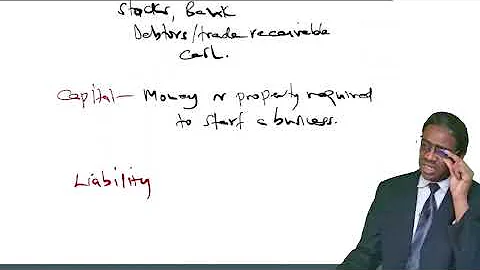 Stocks, Bank
Debtors/trade receivable
Cash.
Capital — Money or property required
to start a business.
Liability